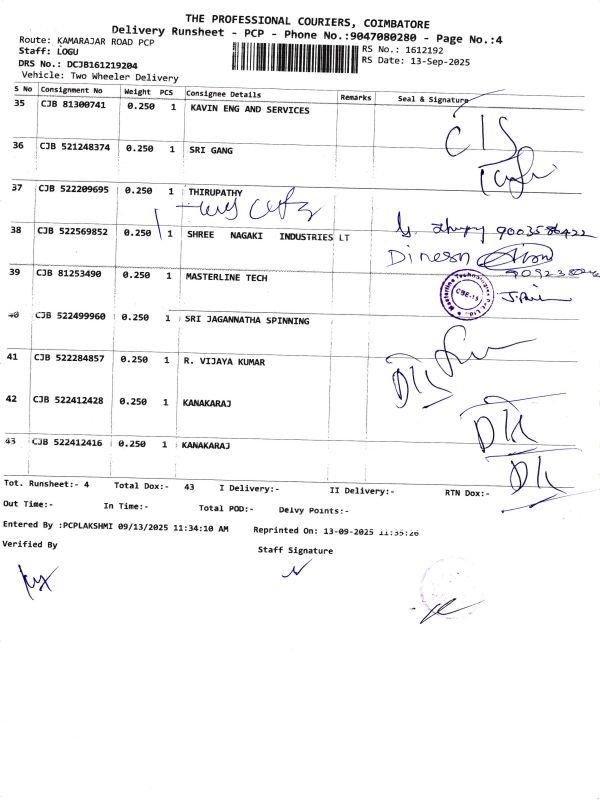 THE PROFESSIONAL COURIERS, COIMBATORE
Delivery Runsheet - PCP - Phone No.:9047080280 - Page No.:4
Route: KAMARAJAR ROAD PCP RS No.: 1612192
Staff: LOGU RS Date: 13-Sep-2025
DRS No.: DCJB161219204
Vehicle: Two Wheeler Delivery
S No Consignment No Weight PCS Consignee Details Remarks Seal & Signature
35 CJB 81300741 0.250 1 KAVIN ENG AND SERVICES
CIS
36 CJB 521248374 0.250 1 SRI GANG
37 CJB 522209695 0.250 1 THIRUPATHY
38 CJB 522569852 0.250 1 SHREE NAGAKI INDUSTRIES LT
9003586422
Dinesh
39 CJB 81253490 0.250 1 MASTERLINE TECH
40 CJB 522499960 0.250 1 SRI JAGANNATHA SPINNING
41 CJB 522284857 0.250 1 R. VIJAYA KUMAR
42 CJB 522412428 0.250 1 KANAKARAJ
43 CJB 522412416 0.250 1 KANAKARAJ
Tot. Runsheet:- 4 Total Dox:- 43 I Delivery:- II Delivery:- RTN Dox:-
Out Time:- In Time:- Total POD:- Delvy Points:-
Entered By :PCPLAKSHMI 09/13/2025 11:34:10 AM Reprinted On: 13-09-2025 11:35:26
Verified By Staff Signature